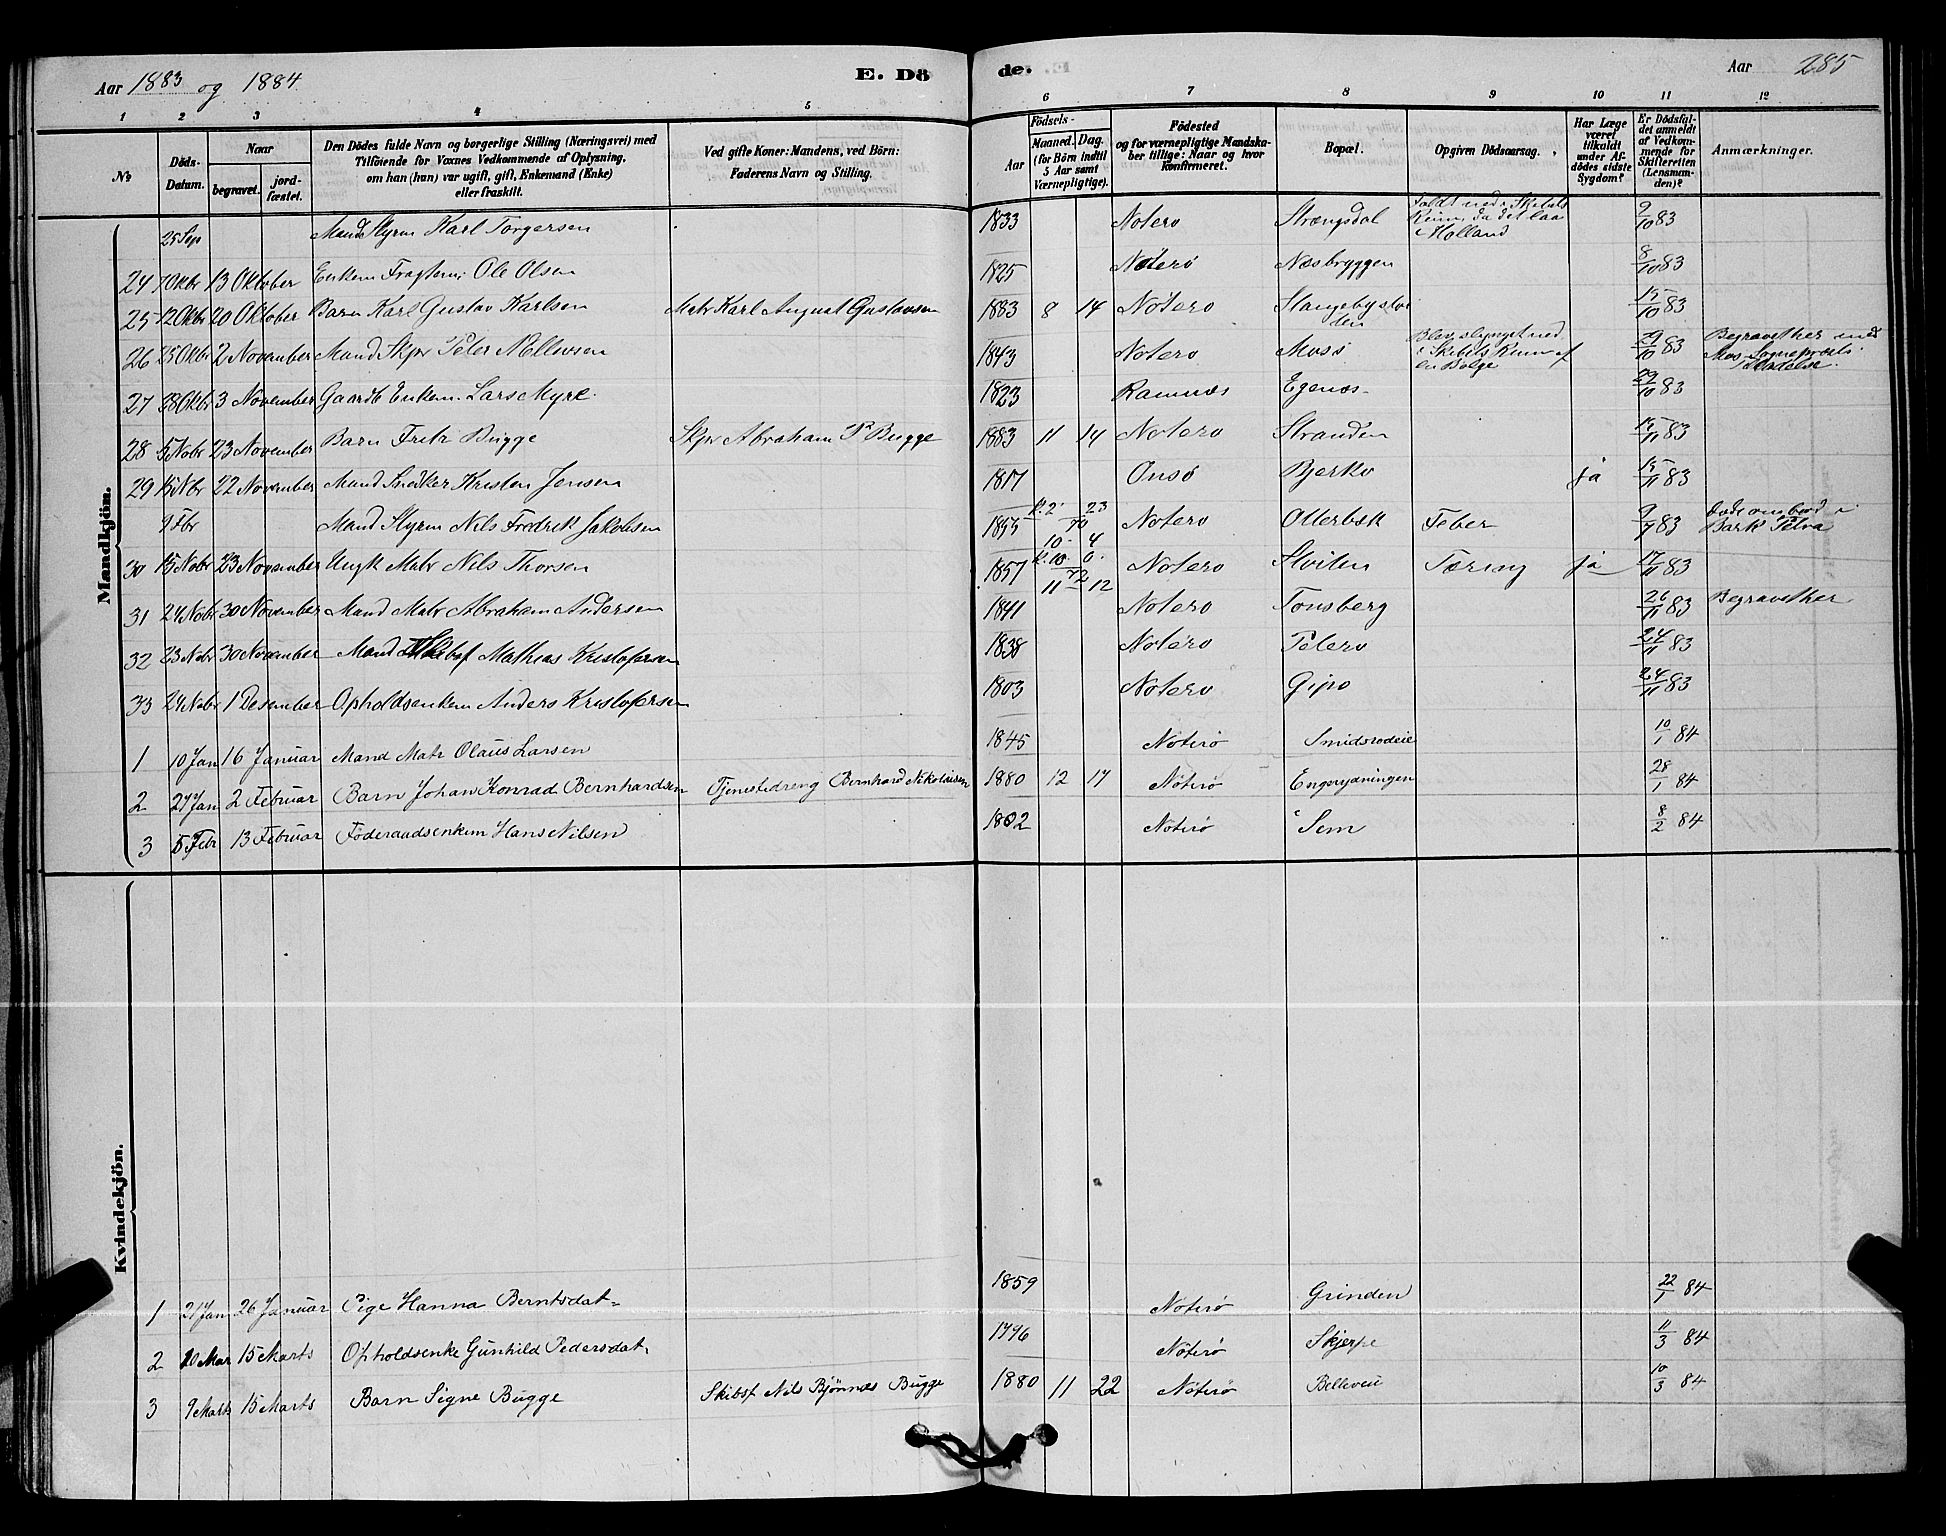 Aar 1883 og 1884. E. Dö de. Aar 285
1 2 3 4 5 6 7 8 9 10 11 12
No
Döds-Datum.
Naar
begravet.
jord-fæstet.
Den Dödes fulde Navn og borgerlige Stilling (Næringsvei) med
Tilföiende for Voxnes Vedkommende af Oplysning,
om han (hun) var ugift, gift, Enkemand (Enke)
eller fraskilt.
Ved gifte Koner: Mandens, ved Börn:
Faderens Navn og Stilling.
Födsels-
Aar
Maaned. Dag.
(for Börn indtil
5 Aar samt
Værnepligtige).
Födested
og for værnepligtige Mandska-
ber tillige: Naar og hvor
konfirmeret.
Bopæl.
Opgiven Dödsaarsag.
Har Læge
været
tilkaldt
under Af-
dödes sidste
Sygdom?
Er Dödsfal-
det anmeldt
af Vedkom-
mende for
Skifteretten
(Lensman-
den)?
Anmærkninger.
Mandkjön.
25 Sep Mand Styrm Karl Torgersen 1833 Noterö Strængsdal Faldt ned i Skibets Reum, da det laa i Holland 9/10 83
24 7 Okbr 13 Oktober Enkem Fragtem: Ole Olsen 1825 Nöterö Næsbryggen 8/10 83
25 12 Okbr 20 Oktober Barn Karl Gustav Karlsen Matr Karl August Gustavsen 1883 8 14 Nöterö 15/10 83
26 25 Okbr 2 November Mand Skpr Peter Mellevsen 1843 Noterö Moss Blev slynget ned i Skibets Reum af en Bölge 29/10 83 Begravet her med Mos Sognepræsts Tilladelse.
27 28 Okbr 3 November Gaardb Enkem. Lars Myre. 1823 Ramnæs Egenæs 29/10 83
28 5 Nobr 23 November Barn Fritz Bugge Skpr Abraham P Bugge 1883 11 14 Noterö Stranden 15/11 83
29 15 Nbr 22 November Mand Snedker Kristen Jensen 1817 Onsö Bjerkö ja 15/11 83
9 Fbr Mand Styrm Nils Fredrik Jakobsen 1855 k. 2 23/70 10 4 Noterö Ollerbsk Feber 9/7 83 Döde ombord i Bark
30 15 Nobr 23 November Ungk Matr Nils Thorsen 1857 k. 10 6/72 11 12 Noterö Hvilen Tæring ja 17/11 83
31 24 Nobr 30 November Mand Matr Abraham Andersen 1841 Noterö Tonsberg 26/11 83 Begravet her
32 23 Nobr 30 November Mand Skibsf Mathias Kristofersen 1838 Noterö Telerö 24/11 83
33 24 Nobr 1 Desember Opholdsenkem Anders Kristofersen 1803 Noterö Gipö 24/11 83
1 10 Jan 16 Januar Mand Matr Olaus Larsen 1845 Nöterö Smidsrödeie 10/1 84
2 27 Jan 2 Februar Barn Johan Konrad Bernhardsen Tjenestedreng Bernhard Nikolaisen 1880 12 17 Nöterö Engerydningen 28/1 84
3 5 Febr 13 Februar Föderaadsenkem Hans Nilsen 1802 Nöterö Sem 8/2 84
Kvindekjön.
1 21 Jan 26 Januar Pige Hanna Berntsdat= 1859 Nöterö Grinden 22/1 84
2 10 Mar 15 Marts Opholdsenke Gunhild Pedersdat. 1796 Nöterö Skjerpe 11/3 84
3 9 Marts 15 Marts Barn Signe Bugge Skibsf Nils Bjönnes Bugge 1880 11 22 Nöterö Belleveu 10/3 84